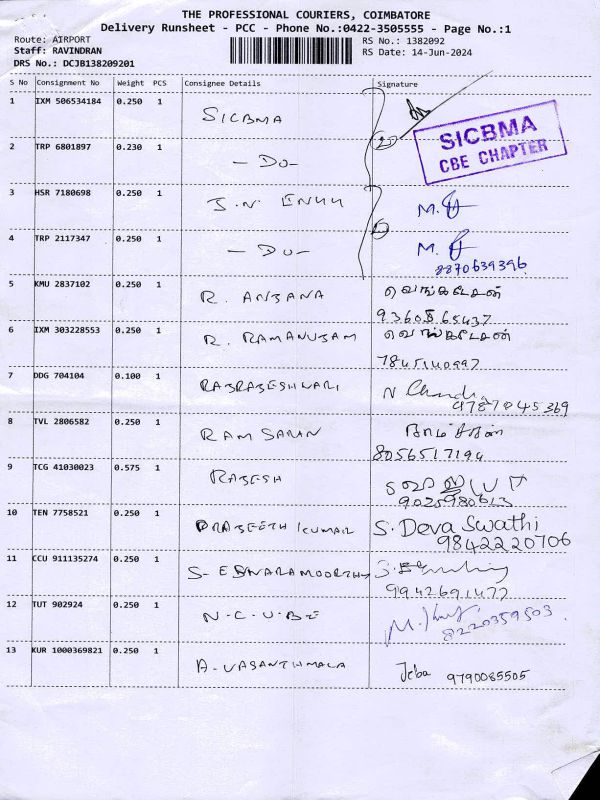 THE PROFESSIONAL COURIERS, COIMBATORE
Delivery Runsheet - PCC - Phone No.:0422-3505555 - Page No.:1
Route: AIRPORT RS No.: 1382092
Staff: RAVINDRAN RS Date: 14-Jun-2024
DRS No.: DCJB138209201
S No Consignment No Weight PCS Consignee Details Signature
1 IXM 506534184 0.250 1 SICBMA
SICBMA
CBE CHAPTER
2 TRP 6801897 0.230 1 - DO -
3 HSR 7180698 0.250 1 M.
4 TRP 2117347 0.250 1 - DO - M.
8870639396
5 KMU 2837102 0.250 1 R. ANJANA வெங்கடேசன்
6 IXM 303228553 0.250 1 R. RAMANUJAM வெங்கடேசன்
7845140997
7 DDG 704104 0.100 1 RAJRAJESHWARI N Chandra
9787845369
8 TVL 2806582 0.250 1 RAM SARAN
8056517194
9 TCG 41030023 0.575 1 RAJESH
9025980613
10 TEN 7758521 0.250 1 PRAJEETH KUMAR S. Deva Swathi
9842220706
11 CCU 911135274 0.250 1 S. ESWARAMOORTHY
9942691477
12 TUT 902924 0.250 1 N.C.U.BE
8220359503
13 KUR 1000369821 0.250 1 A. VASANTHMALA Jeba 9790085505